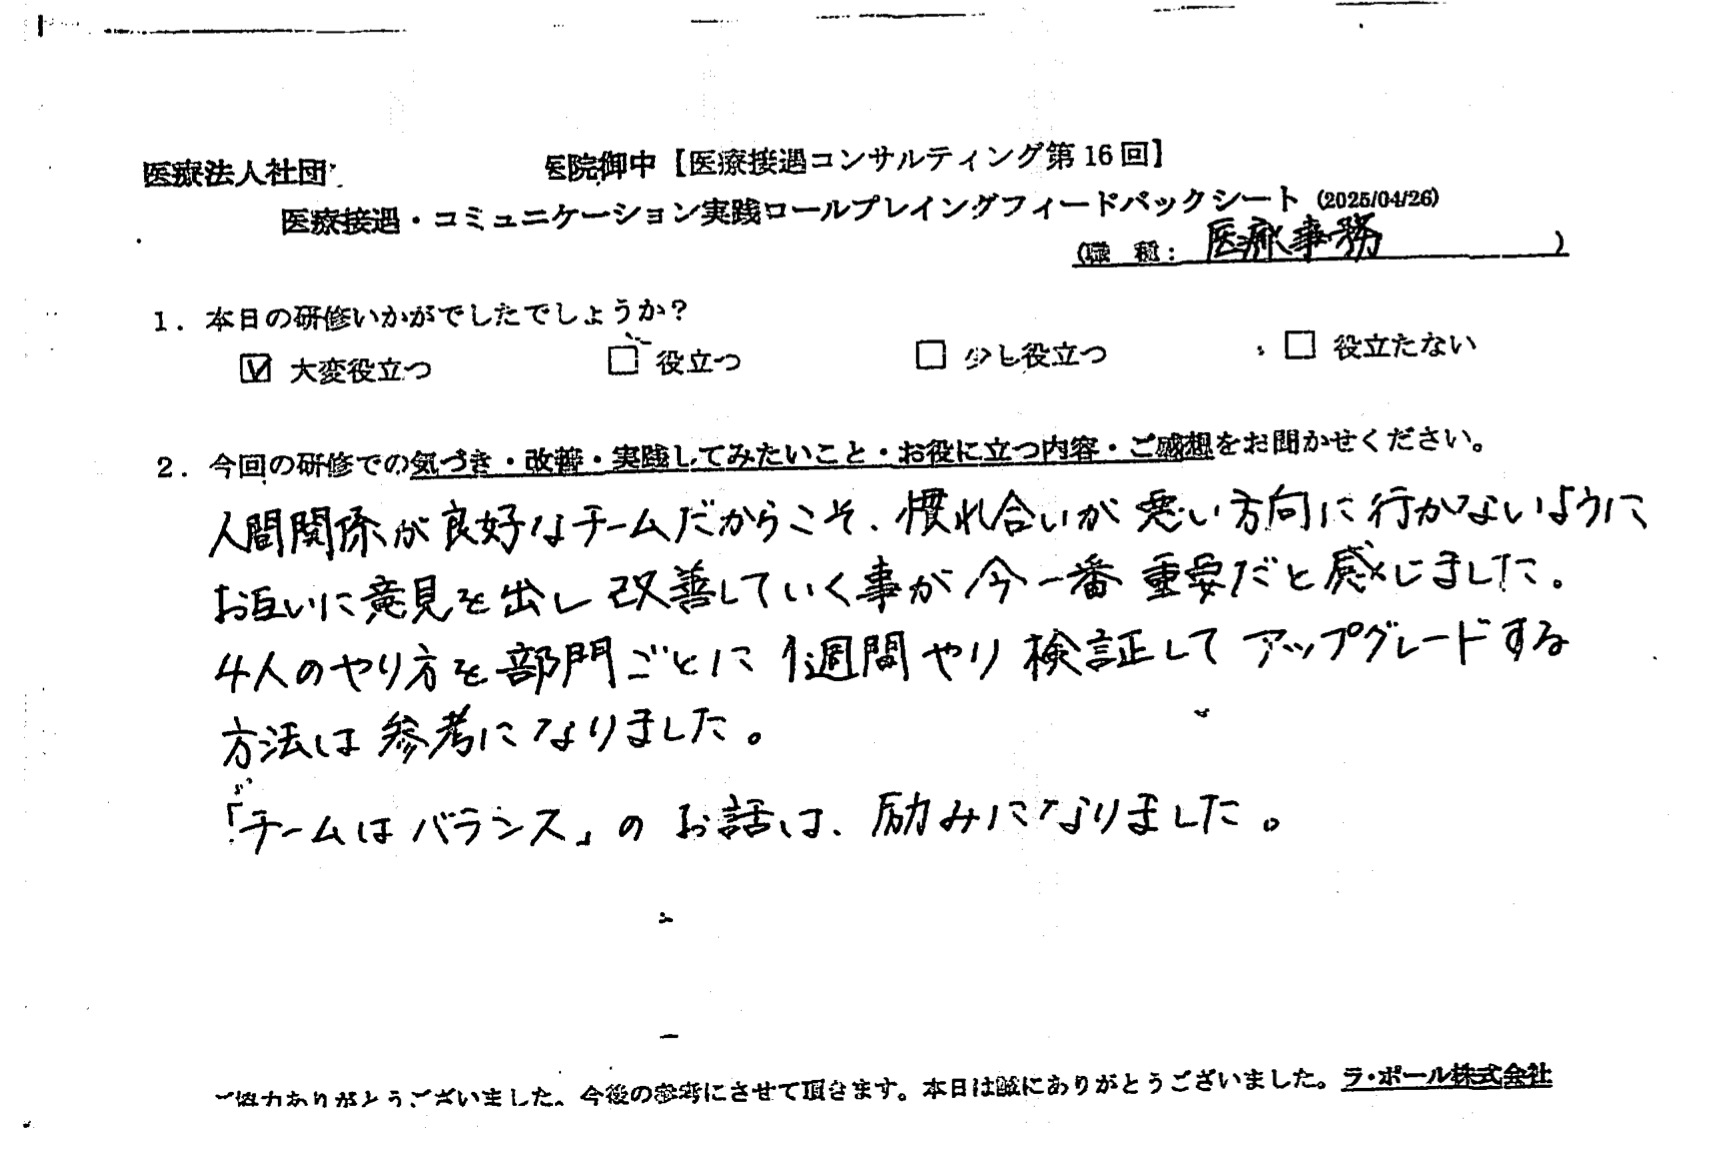 医療法人社団 医院御中【医療接遇コンサルティング第16回】
医療接遇・コミュニケーション実践ロールプレイングフィードバックシート (2025/04/26)
(職 種: 医療事務 )
1. 本日の研修いかがでしたでしょうか?
☑ 大変役立つ □ 役立つ □ 少し役立つ □ 役立たない
2. 今回の研修での気づき・改善・実践してみたいこと・お役に立つ内容・ご感想をお聞かせください。
人間関係が良好なチームだからこそ、慣れ合いが悪い方向に行かないように
お互いに意見を出し改善していく事が今一番重要だと感じました。
4人のやり方を部門ごとに1週間やり検証してアップグレードする
方法は参考になりました。
「チームはバランス」のお話は、励みになりました。
ご協力ありがとうございました。今後の参考にさせて頂きます。本日は誠にありがとうございました。ラ・ポール株式会社